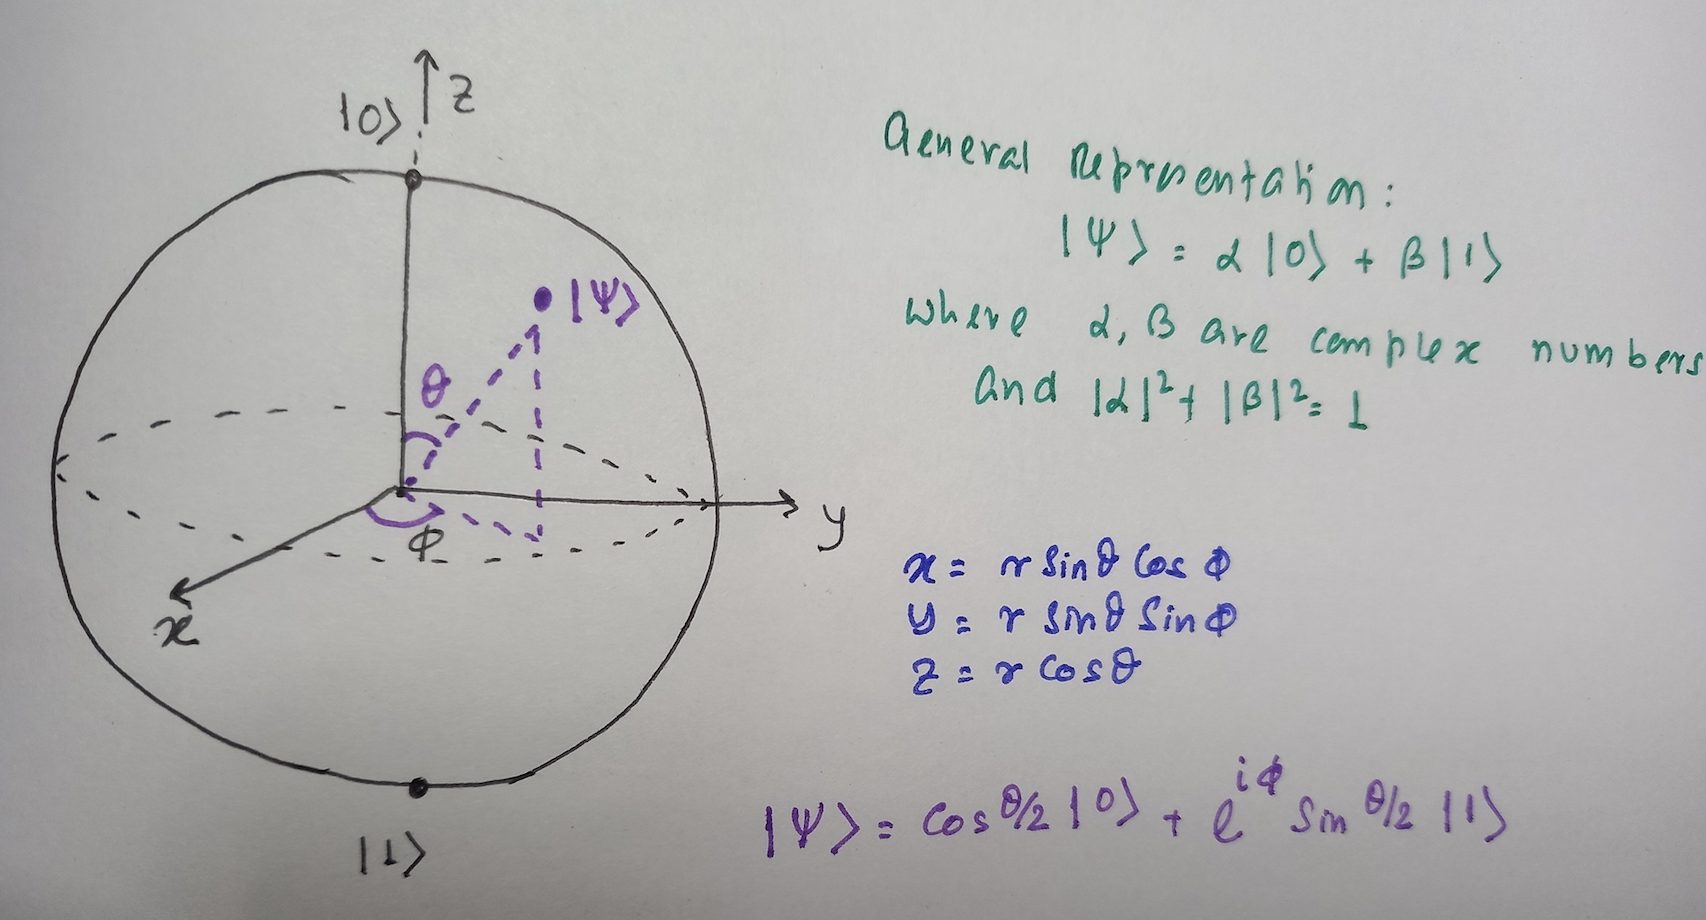 z
|0⟩
|Ψ⟩
θ
ϕ
y
x
|1⟩
General Representation:
|Ψ⟩ = α |0⟩ + β |1⟩
where α, β are complex numbers
and |α|² + |β|² = 1
x = r sinθ cos ϕ
y = r sinθ sinϕ
z = r cosθ
|Ψ⟩ = cos θ/2 |0⟩ + e^{iϕ} sin θ/2 |1⟩